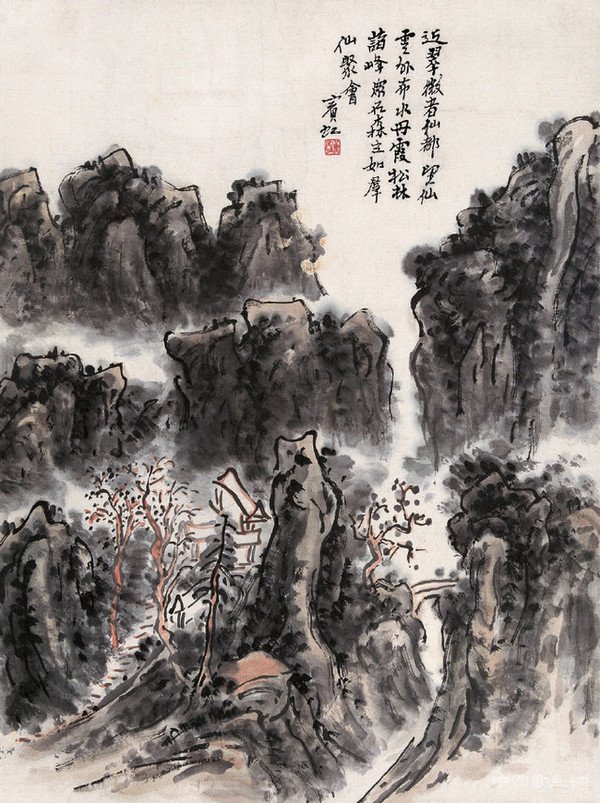 近翠微者仙都望仙
雲外布水丹霞松林
諸峰眾石森立如羣
仙聚會
賓虹